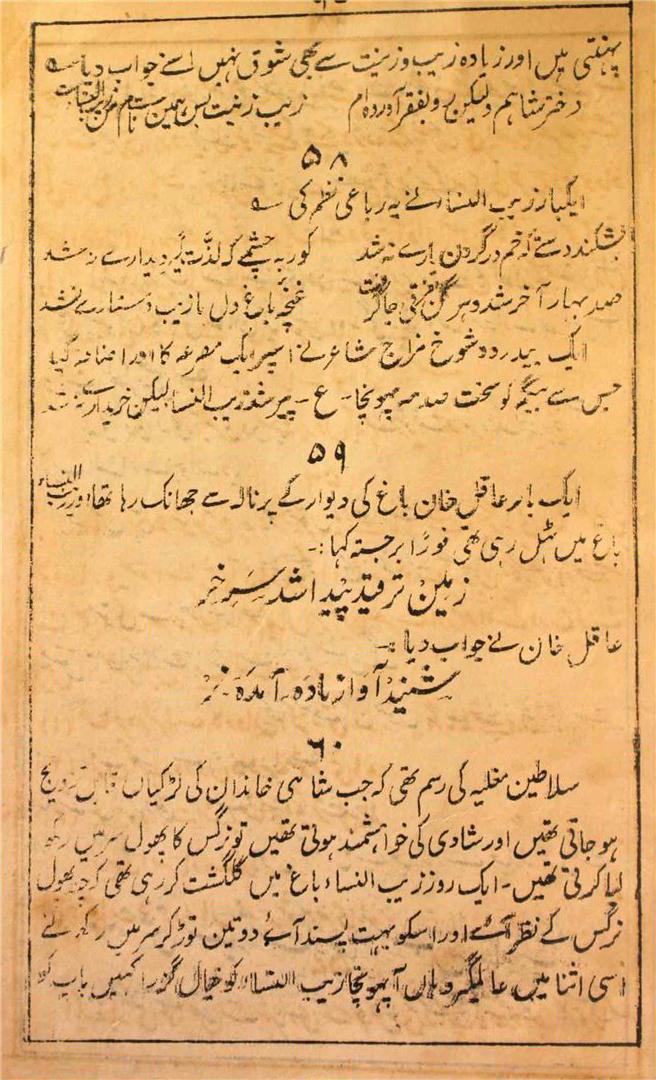 پہنتی ہیں اور زیادہ زیب و زینت سے بھی شوق نہیں اسنے جواب دیا ؎
دختر شاہم ولیکن رو بفقر آوردہ ام زیب زینت بس ہمین ست نام من زیب النساست
۵۸
ایکبار زیب النساء نے یہ رباعی نظم کی ؎
بشکند دستے کہ خم در گردن یارے نہ شد کور بہ چشمے کہ لذت گیر دیدارے نہ شد
صد بہار آخر شد و ہر گل بفرقے جا گرفت غنچہ باغ دل ما زیب دستارے نشد
ایک بیدرد و شوخ مزاج شاعر نے اسپر ایک مصرعہ کا اور اضافہ کیا
جس سے بیگم کو سخت صدمہ پہونچا۔ ع۔ پیر شد زیب النسا لیکن خریدارے نہ شد
۵۹
ایک بار عاقل خان باغ کی دیوار کے پرنالہ سے جھانک رہا تھا اور زیب النساء
باغ میں ٹہل رہی تھی فورًا برجستہ کہا:۔
زمین ترقید پیدا شد سر خر
عاقل خان نے جواب دیا :۔
شنید آواز مادہ۔ آمدہ۔ نر
۶۰
سلاطین مغلیہ کی رسم تھی کہ جب شاہی خاندان کی لڑکیاں قابل تزویج
ہو جاتی تھیں اور شادی کی خواہشمند ہوتی تھیں تو نرگس کا پھول سر میں رکھ
لیا کرتی تھیں۔ ایک روز زیب النساء باغ میں گلگشت کر رہی تھی کہ چند پھول
نرگس کے نظر آئے اور اسکو بہت پسند آئے دو تین توڑ کر سر میں رکھ لئے
اسی اثنا میں عالمگیر وہاں آ پہونچا زیب النساء کو خیال گزرا کہیں باپ کو